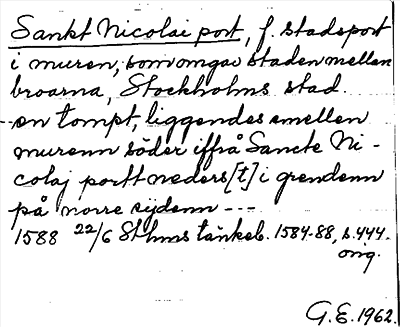 Sankt Nicolai port, f. stadsport
i muren, som omgav staden mellan
broarna, Stockholms stad.
--en tompt, liggendes emellen
murenn söder iffrå Sancte Ni-
colaj portt neders[t] i grendenn
på norre sijdenn ---
1588 22/6 Sthms tänkeb. 1584-88, s. 444.
orig.
G.E. 1962.